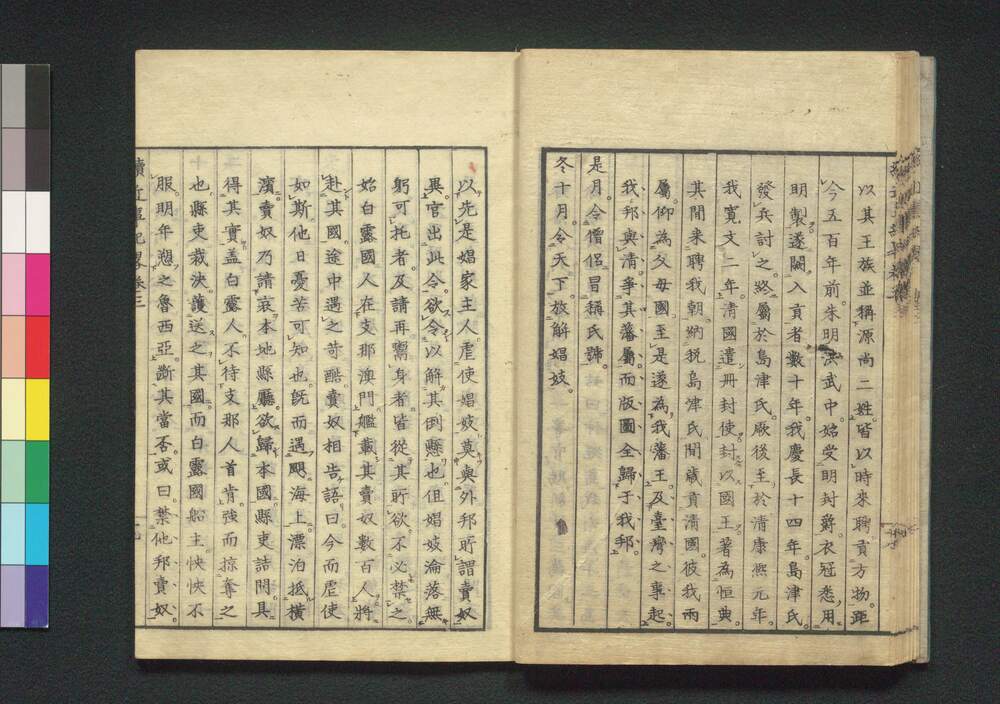 以其王族並稱源尚二姓。皆以時來聘。貢方物。距
今五百年前。朱明洪武中始受明封爵。衣冠悉用
明製。遂闕入貢者數十年。我慶長十四年島津氏
發兵討之。終屬於島津氏。厥後至於清康熙元年
我寛文二年。清國遣冊封使。封以國王。著為恒典
其間来聘我朝。納税島津氏。間歳貢清國。彼我兩
屬。仰為父母國。至是遂為我藩王。及臺灣之事起
我邦與清爭其藩屬。而版圖全歸于我邦。
是月。令僧侶冒稱氏號。
冬十月。令天下放解娼妓。
以先是娼家主人。虐使娼妓。莫與外邦所謂賣奴
異。官出此令。欲令以解其倒懸也。但娼妓淪落無
躬可托者。及請再鬻身者。皆從其所欲。不必禁之
始白露國人在支那澳門。艦載其賣奴數百人。將
赴其國。途中遇之苛酷。賣奴相告語曰。今而虐使
如斯。他日憂苦可知也。既而遇颶。海上漂泊抵橫
濱。賣奴乃請哀本地縣廳。欲歸本國。縣吏詰問。具
得其實。盖白露人。不待支那人首肯。強而掠奪之
也。縣吏裁決。護送之其國。而白露國船主。怏怏不
服。明年愬之魯西亞。斷其當否。或曰。禁他邦賣奴。
續近世紀畧 卷三